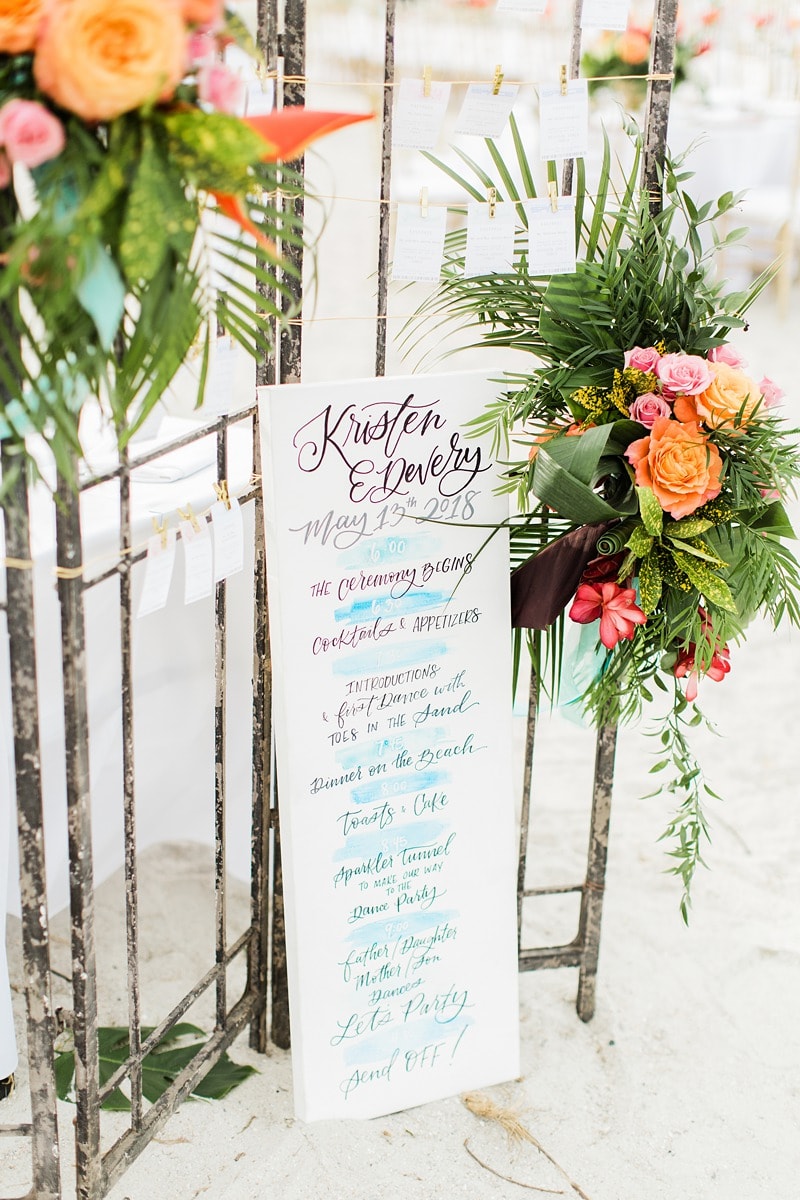 Kristen
& Devery
May 13th 2018
6:00
THE CEREMONY BEGINS
Cocktails & APPETIZERS
INTRODUCTIONS
& First Dance with
TOES IN THE Sand
Dinner on the Beach
8:00
Toasts & Cake
Sparkler Tunnel
TO MAKE OUR WAY
TO THE
Dance Party
9:00
Father/Daughter
Mother/Son
Dances
Let's Party
Send OFF!